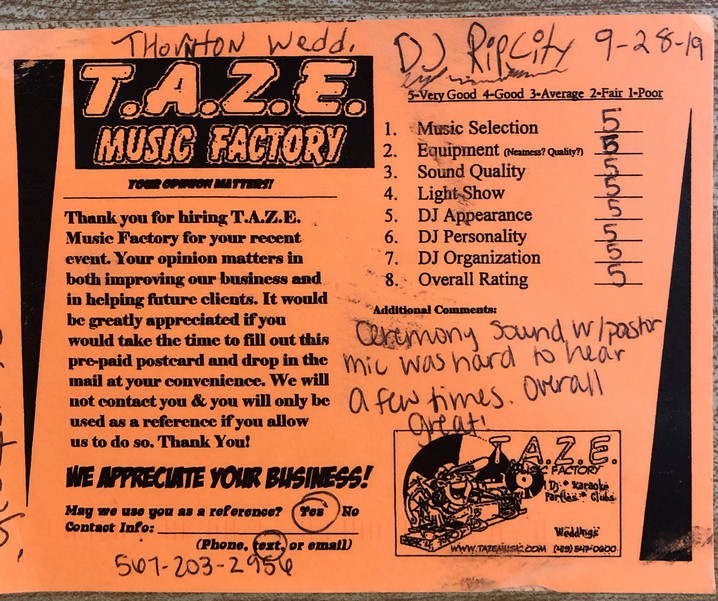 THORNTON Wedd.
DJ RipCity 9-28-19
T.A.Z.E.
MUSIC FACTORY
YOUR OPINION MATTERS!
Thank you for hiring T.A.Z.E.
Music Factory for your recent
event. Your opinion matters in
both improving our business and
in helping future clients. It would
be greatly appreciated if you
would take the time to fill out this
pre-paid postcard and drop in the
mail at your convenience. We will
not contact you & you will only be
used as a reference if you allow
us to do so. Thank You!
WE APPRECIATE YOUR BUSINESS!
May we use you as a reference? Yes No
Contact Info:
(Phone, text, or email)
567-203-2956
5-Very Good 4-Good 3-Average 2-Fair 1-Poor
1. Music Selection 5
2. Equipment (Neatness? Quality?) 5
3. Sound Quality 5
4. Light Show 5
5. DJ Appearance 5
6. DJ Personality 5
7. DJ Organization 5
8. Overall Rating 5
Additional Comments:
Ceremony sound w/pastor
mic was hard to hear
a few times. Overall
great!
T.A.Z.E.
MUSIC FACTORY
Dj * Karaoke
Parties * Clubs
Weddings
WWW.TAZEMUSIC.COM (419) 547-0600